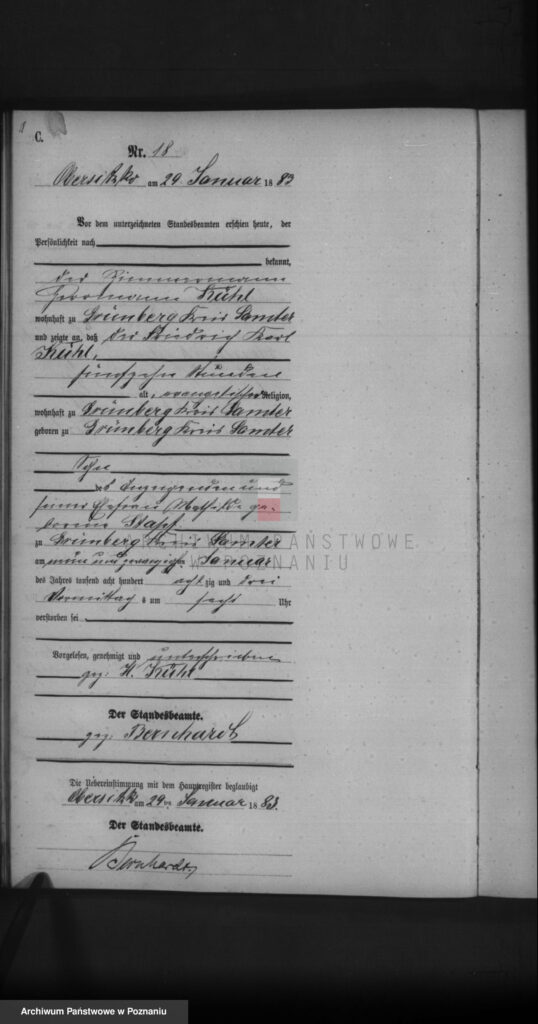 C.
Nr. 18
Obersitzko am 29 Januar 1883
Vor dem unterzeichneten Standesbeamten erschien heute, der
Persönlichkeit nach
bekannt,
der Zimmermann
Herrmann Kühl
wohnhaft zu Grünberg Kreis Samter
und zeigte an, daß der Friedrich Karl
Kühl,
fünfzehn Stunden
alt, evangelischer Religion,
wohnhaft zu Grünberg Kreis Samter
geboren zu Grünberg Kreis Samter
Sohn
des Anzeigenden und
seiner Ehefrau Mathilde ge-
borene Stapf
zu Grünberg Kreis Samter
am neun und zwanzigsten Januar
des Jahres tausend acht hundert achtzig und drei
Vormittags um sechs Uhr
verstorben sei
Vorgelesen, genehmigt und unterschrieben
gez: H. Kühl
Der Standesbeamte.
gez: Bernhardt
Die Uebereinstimmung mit dem Hauptregister beglaubigt
Obersitzko am 29ten Januar 1883.
Der Standesbeamte.
Bernhardt
ARCHIWUM PAŃSTWOWE
W POZNANIU
Archiwum Państwowe w Poznaniu